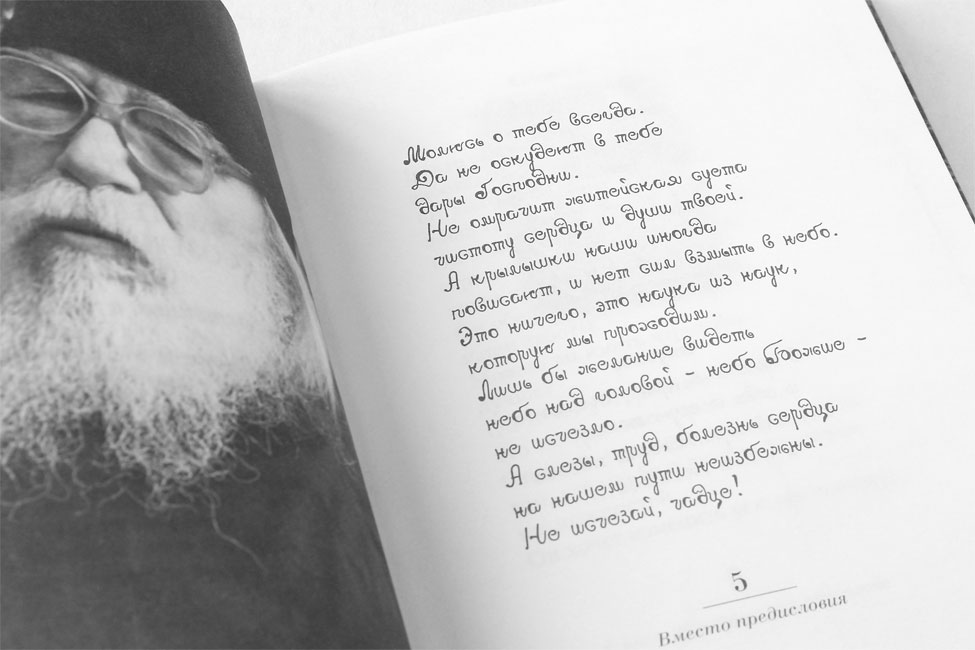 Молюсь о тебе всегда.
Да не оскудеют в тебе
дары Господни.
Не омрачит житейская суета
чистоту сердца и души твоей.
А крылышки наши иногда
повисают, и нет сил взмыть в небо.
Это ничего, это наука из наук,
которую мы проходим.
Лишь бы желание видеть
небо над головой – небо Божие –
не исчезло.
А слезы, труд, болезнь сердца
на нашем пути неизбежны.
Не исчезай, чадце!
5
Вместо предисловия